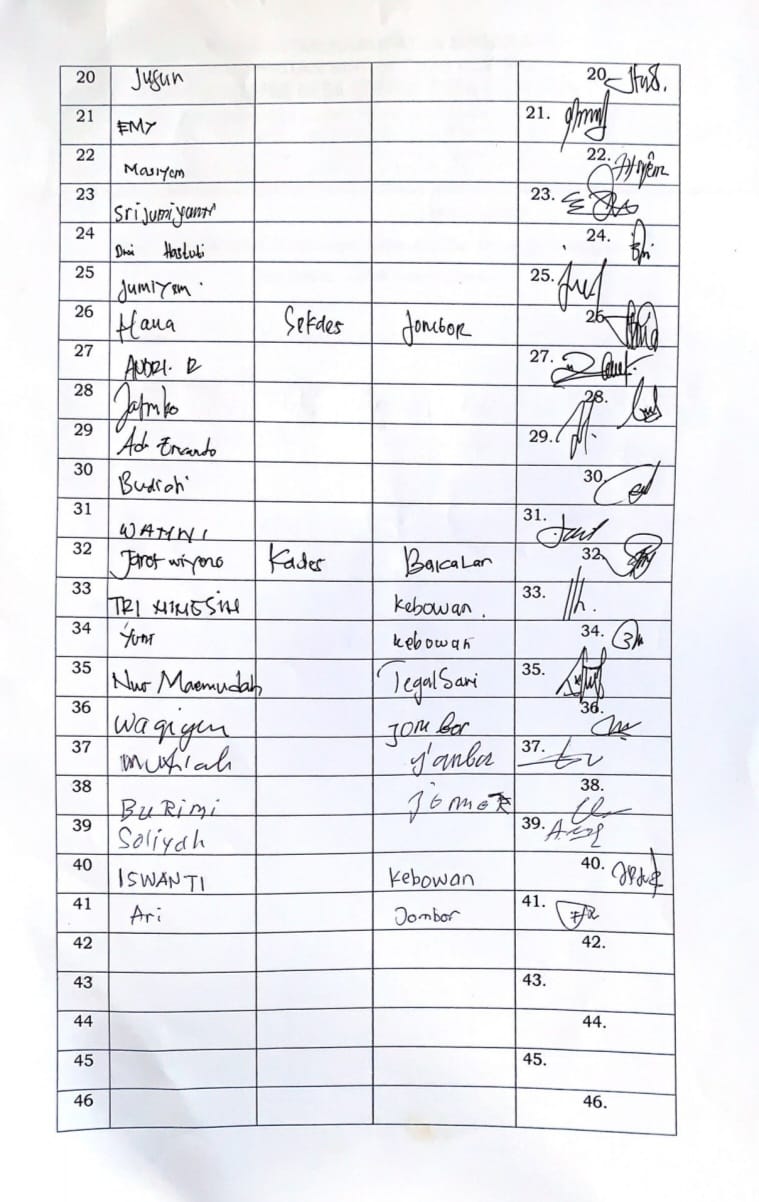 20 Jugun 20.
21 EMY 21.
22 Masiyem 22.
23 Srijumiyanti 23.
24 Dwi Hastuti 24.
25 Jumiyem. 25.
26 Hana Sekdes Jombor 26.
27 ANDRI. R 27.
28 Jatmko 28.
29 Adi Ernando 29.
30 Budiati 30.
31 WAHNI 31.
32 Jarot wiyono Kades Bakalan 32.
33 TRI NINGSIH Kebowan. 33.
34 Yuni kebowan 34.
35 Nur Maemudah TegalSari 35.
36 Wagiyen Jombor 36.
37 37.
38 BURimi 38.
39 Soliyah 39.
40 ISWANTI Kebowan 40.
41 Ari Jombor 41.
42 42.
43 43.
44 44.
45 45.
46 46.